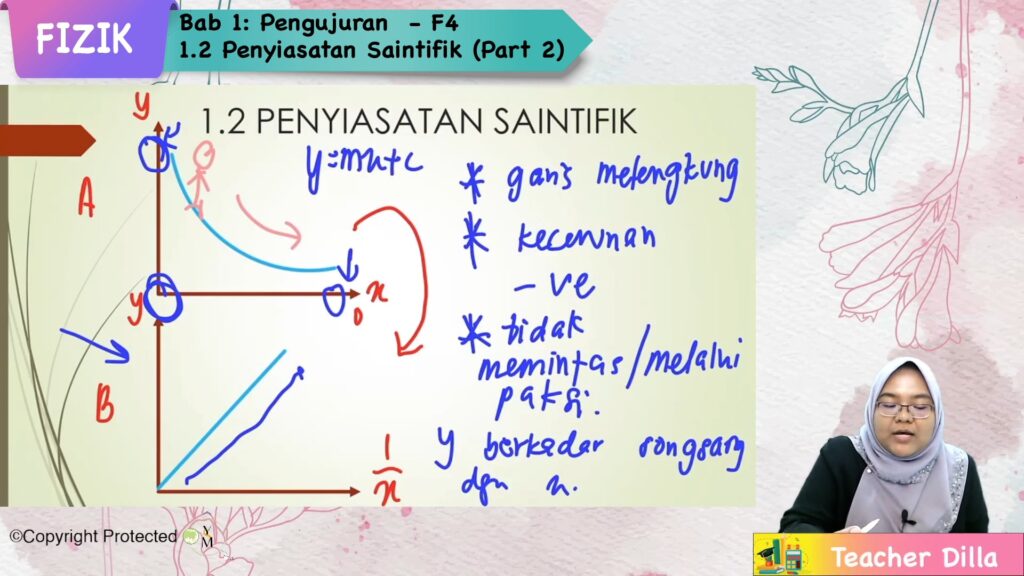 FIZIK
Bab 1: Pengujuran - F4
1.2 Penyiasatan Saintifik (Part 2)
1.2 PENYIASATAN SAINTIFIK
y
A
y=mx+c
x
y
B
1
x
* garis melengkung
* kecerunan
- ve
* tidak
memintas/melalui
paksi.
y berkadar songsang
dgn x.
©Copyright Protected
YM
Teacher Dilla